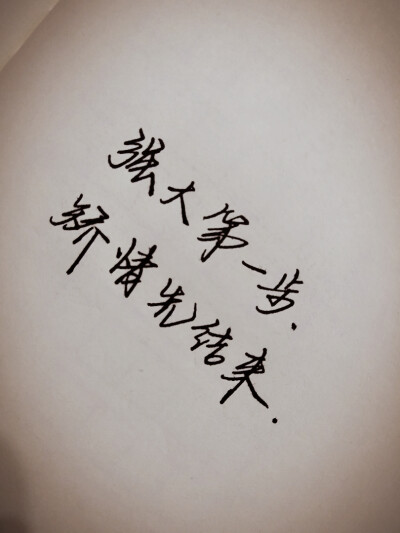 强大第一步.
矫情先结束.